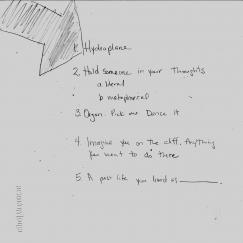 1. Hydroplane
2. Hold someone in your thoughts
a. literal
b. metaphorical
3. Organ. Pick one Dance it
4. Imagine you on the cliff. Anything
you want to do there
5. A past life you lived as